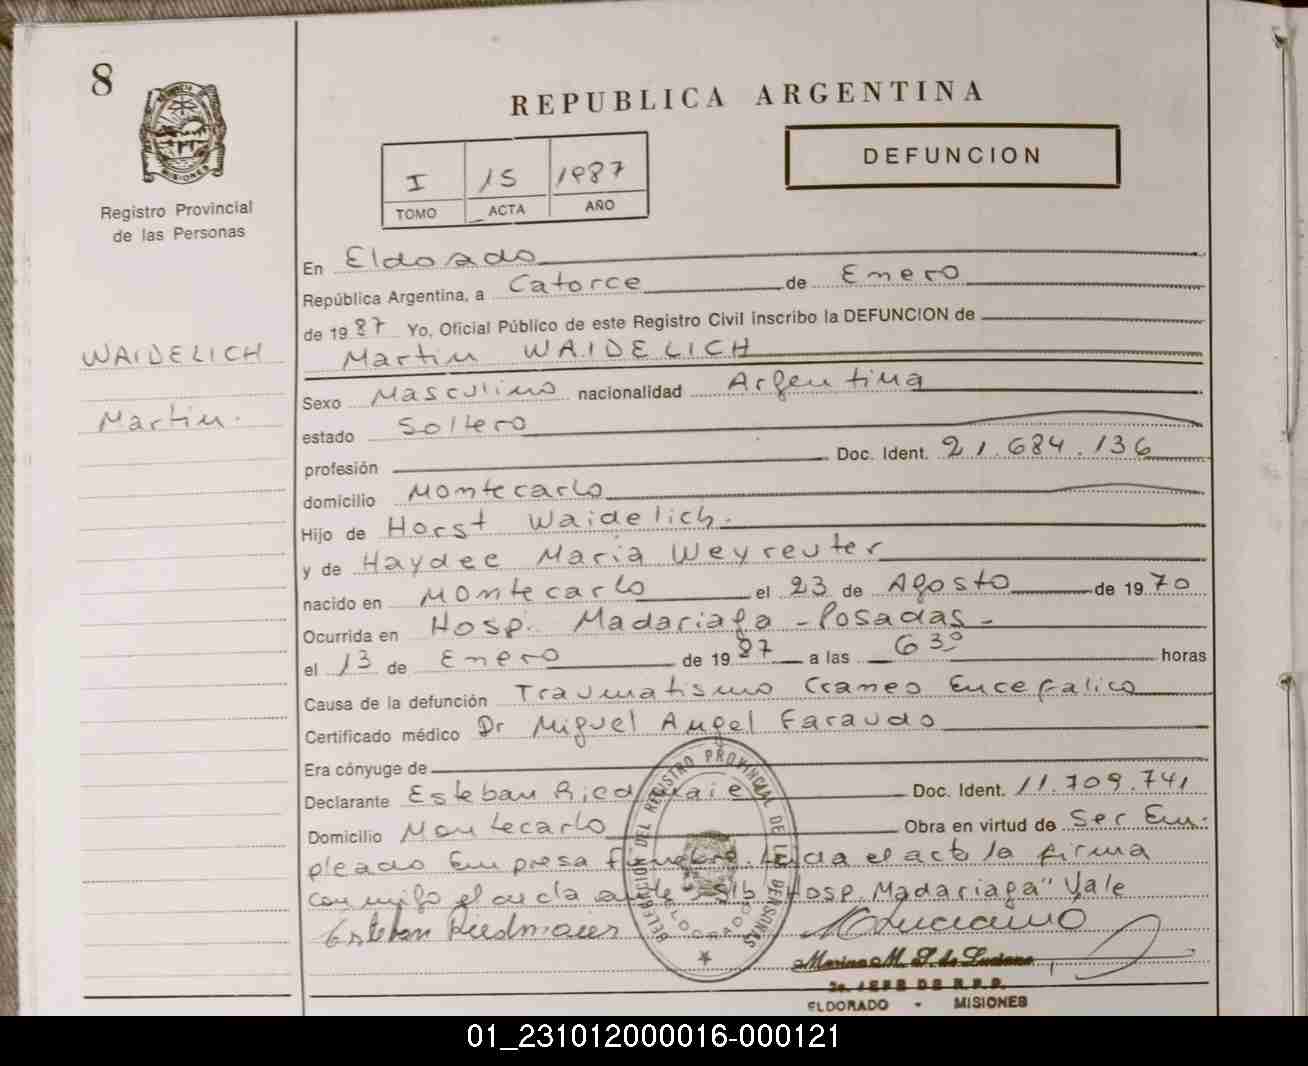 8
REPUBLICA ARGENTINA
MISIONES
Registro Provincial
de las Personas
I 15 1987
TOMO ACTA AÑO
DEFUNCION
WAIDELICH
Martin.
En Eldorado
República Argentina, a Catorce de Enero
de 1987 Yo, Oficial Público de este Registro Civil inscribo la DEFUNCION de
Martin WAIDELICH
Sexo Masculino nacionalidad Argentina
estado Soltero
profesión Doc. Ident. 21.684.136
domicilio Montecarlo
Hijo de Horst Waidelich.
y de Haydee Maria Weyreuter
nacido en Montecarlo el 23 de Agosto de 1970
Ocurrida en Hosp. Madariaga - Posadas -
el 13 de Enero de 1987 a las 6 30 horas
Causa de la defunción Traumatismo Craneo Encefalico
Certificado médico Dr Miguel Angel Faraudo
Era cónyuge de
Declarante Esteban Doc. Ident. 11.709.741
Domicilio Montecarlo Obra en virtud de Ser Em-
pleado Empresa el acta la firma
conmigo el Hosp. Madariaga" Vale
Esteban Riedmaier
DELEGACION DEL REGISTRO PROVINCIAL DE LAS PERSONAS
ELDORADO
Marina M. S. de Luciano
2o. JEFE DE R.P.P.
ELDORADO - MISIONES
01_231012000016-000121